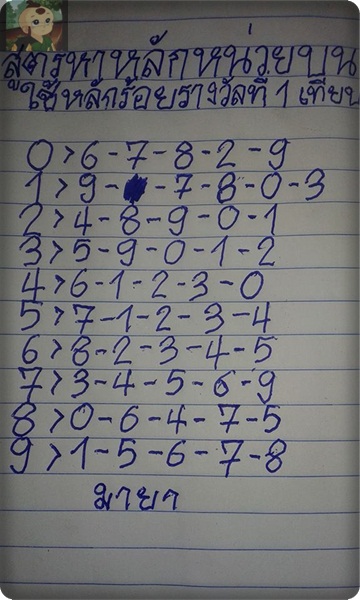 สูตรหาหลักหน่วยบน
ใช้หลักร้อยรางวัลที่ 1 เทียบ
0 > 6 - 7 - 8 - 2 - 9
1 > 9 - - 7 - 8 - 0 - 3
2 > 4 - 8 - 9 - 0 - 1
3 > 5 - 9 - 0 - 1 - 2
4 > 6 - 1 - 2 - 3 - 0
5 > 7 - 1 - 2 - 3 - 4
6 > 8 - 2 - 3 - 4 - 5
7 > 3 - 4 - 5 - 6 - 9
8 > 0 - 6 - 4 - 7 - 5
9 > 1 - 5 - 6 - 7 - 8
มายา